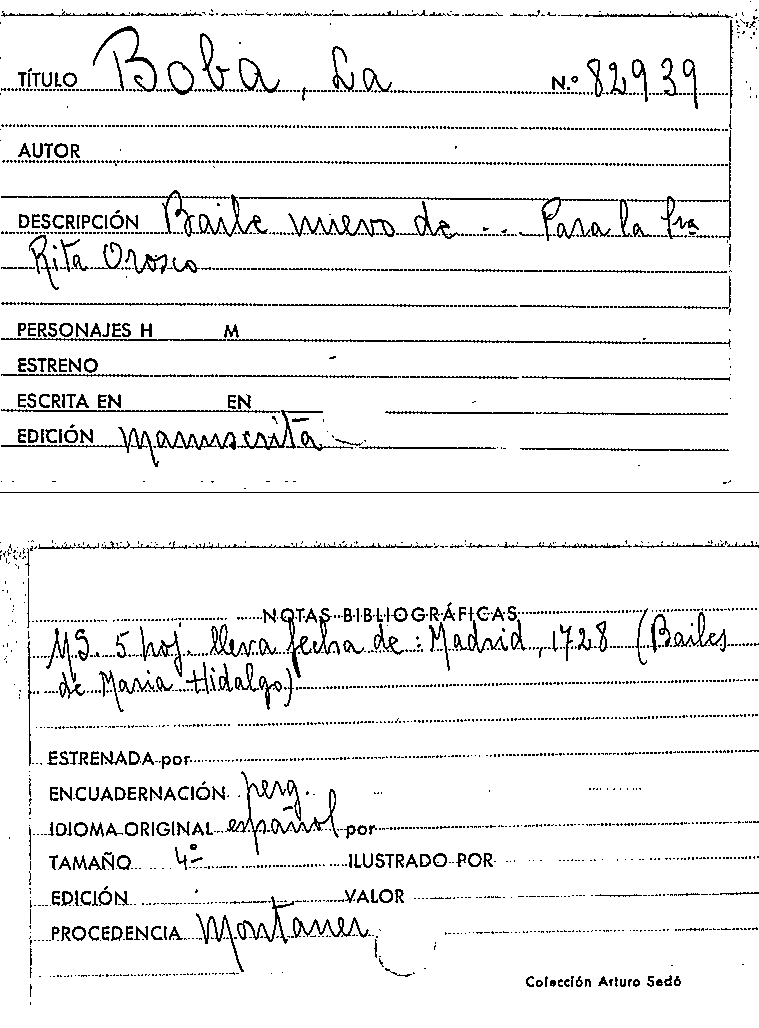 TÍTULO Boba, La N.º 82939
AUTOR
DESCRIPCIÓN Baile nuevo de ... Para la Sra
Rita Orosco
PERSONAJES H M
ESTRENO
ESCRITA EN EN
EDICIÓN Manuscrita
NOTAS BIBLIOGRÁFICAS
MS. 5 hoj. lleva fecha de: Madrid, 1728 (Bailes
de Maria Hidalgo)
ESTRENADA por
ENCUADERNACIÓN perg.
IDIOMA ORIGINAL español por
TAMAÑO 4º ILUSTRADO POR
EDICIÓN VALOR
PROCEDENCIA Montaner
Colección Arturo Sedó